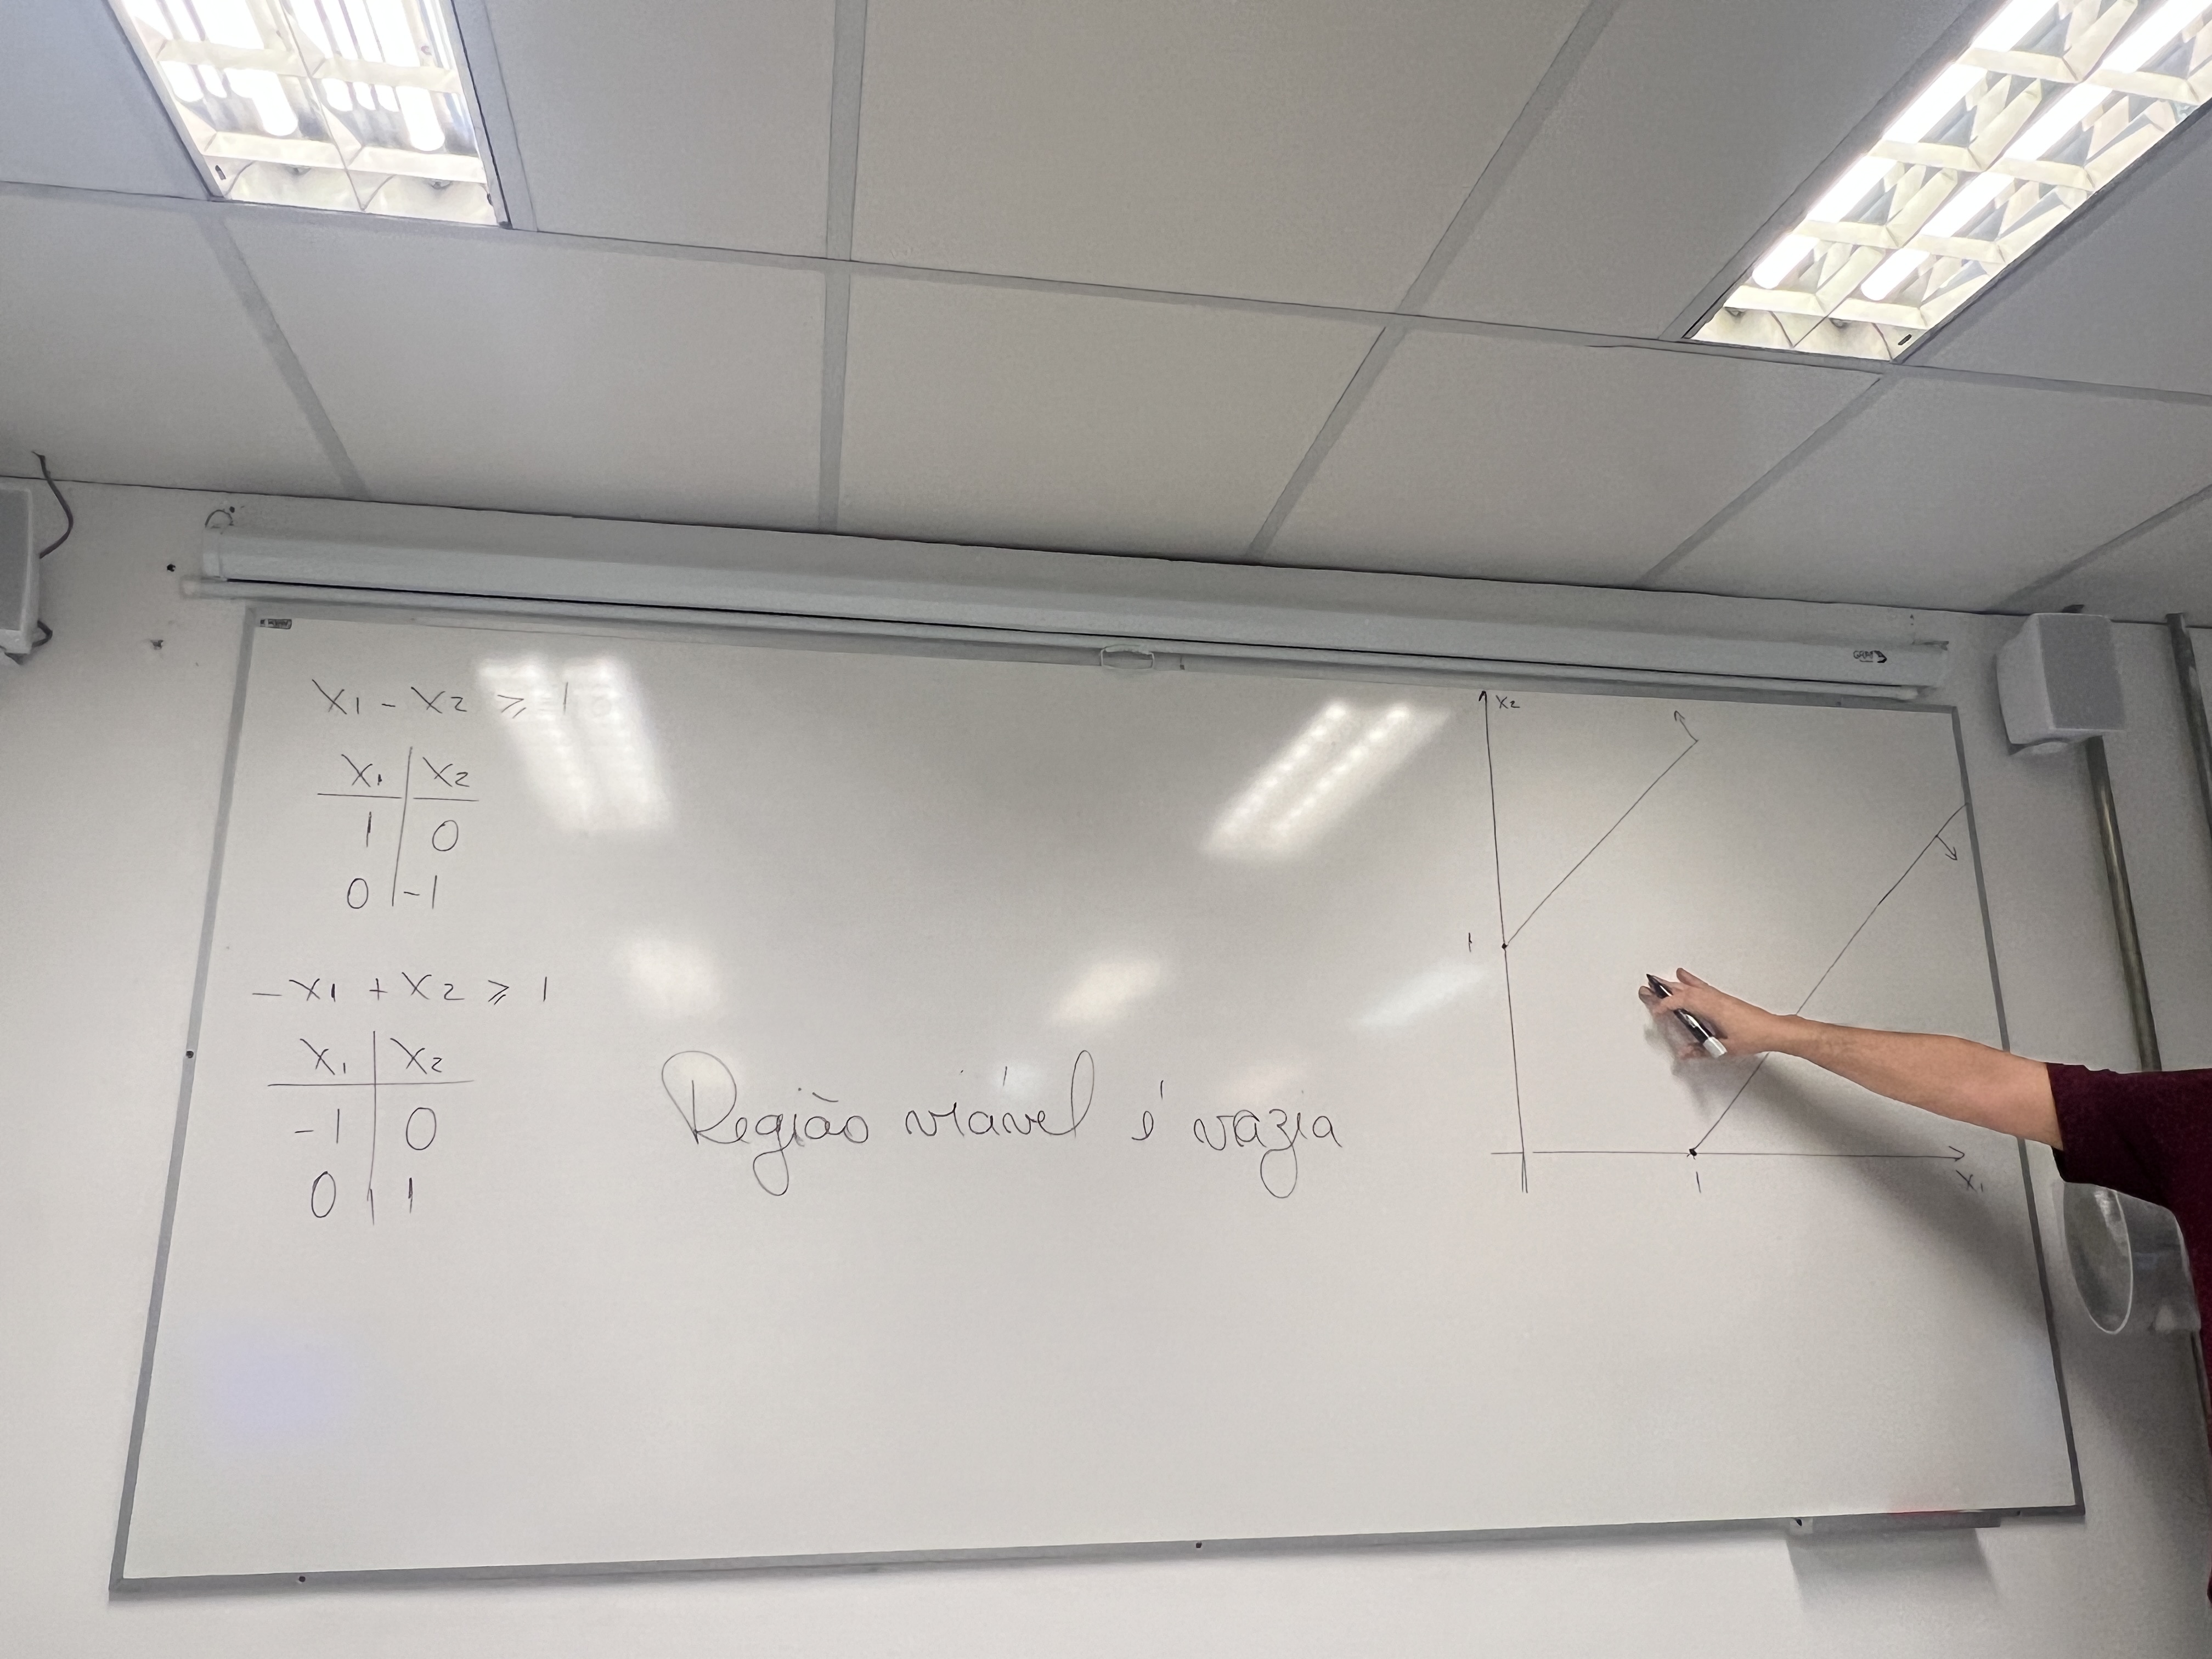 X1 - X2 ≥ 1
X1 | X2
1 | 0
0 | -1
-X1 + X2 ≥ 1
X1 | X2
-1 | 0
0 | 1
Região viável é vazia
X2
1
1
X1